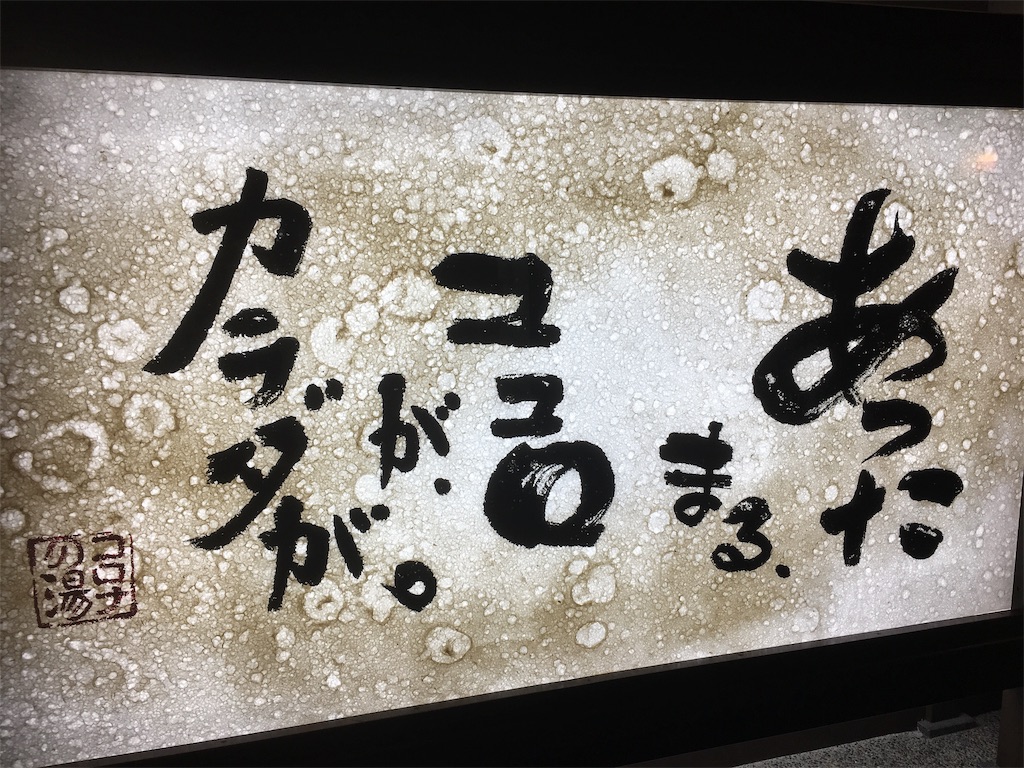 あった
まる、
コココロ
が、
カラダ
が。
コロナ
の湯